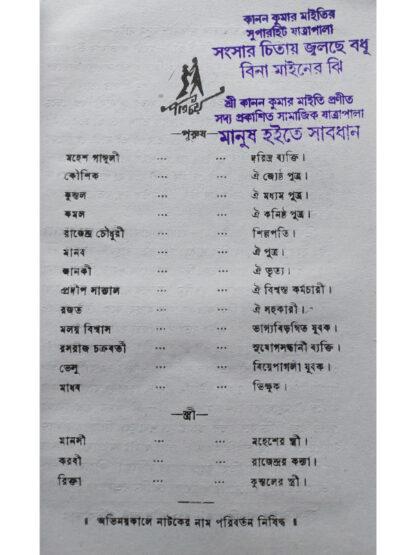 কানন কুমার মাইতির
সুপারহিট যাত্রাপালা
সংসার চিতায় জ্বলছে বধূ
বিনা মাইনের ঝি
পরিচয়
শ্রী কানন কুমার মাইতি প্রণীত
সদ্য প্রকাশিত সামাজিক যাত্রাপালা
মানুষ হইতে সাবধান
—পুরুষ—
মহেশ গাঙ্গুলী ... ... দরিদ্র ব্যক্তি।
কৌশিক ... ... ঐ জ্যেষ্ঠ পুত্র।
কুন্তল ... ... ঐ মধ্যম পুত্র।
কমল ... ... ঐ কনিষ্ঠ পুত্র।
রাজেন্দ্র চৌধুরী ... ... শিল্পপতি।
মানব ... ... ঐ পুত্র।
জানকী ... ... ঐ ভৃত্য।
প্রদীপ সান্যাল ... ... ঐ বিশ্বস্ত কর্মচারী।
রজত ... ... ঐ সহকারী।
মলয় বিশ্বাস ... ... ভাগ্যবিড়ম্বিত যুবক।
রসরাজ চক্রবর্তী ... ... সুযোগসন্ধানী ব্যক্তি।
ভেলু ... ... বিয়েপাগলা যুবক।
মাধব ... ... ভিক্ষুক।
—স্ত্রী—
মানসী ... ... মহেশের স্ত্রী।
করবী ... ... রাজেন্দ্রর কন্যা।
রিক্তা ... ... কুন্তলের স্ত্রী।
॥ অভিনয়কালে নাটকের নাম পরিবর্তন নিষিদ্ধ ॥